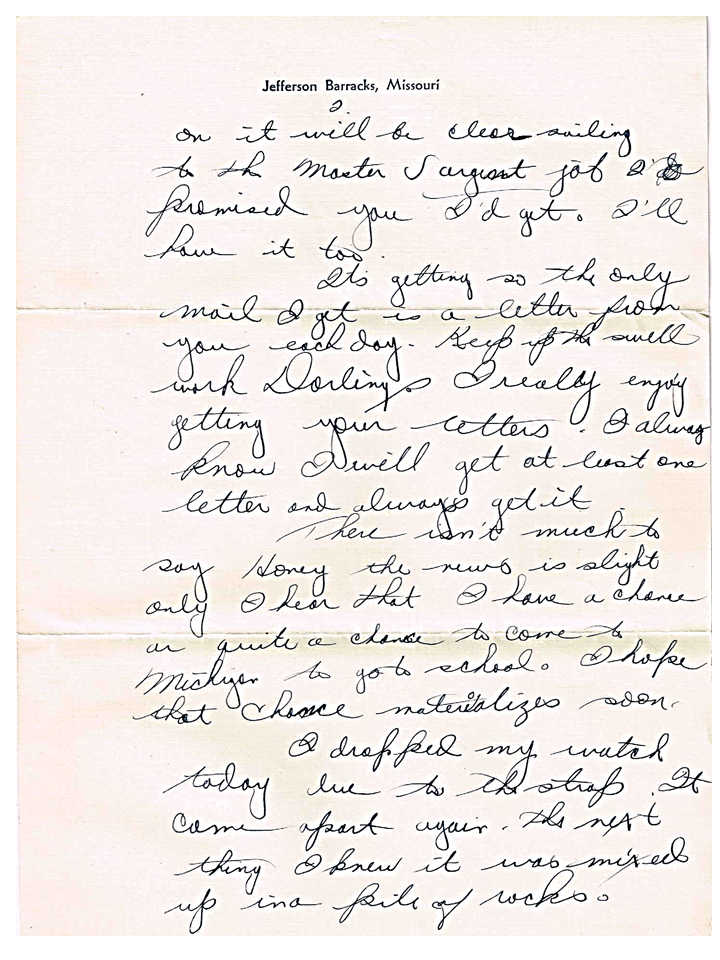 Jefferson Barracks, Missouri
2.
on it will be clear sailing
to th Master Sargent job I
promised you I'd get. I'll
have it too.
Its getting so the only
mail I get is a letter from
you each day. Keep up the swell
work Darling, I really enjoy
getting your letters. I alway
know I will get at least one
letter and always get it.
There isn't much to
say Honey the news is slight
only I hear that I have a chance
or quite a chance to come to
Michigan to go to school. I hope
that chance materializes soon.
I dropped my watch
today due to the strap. It
came apart again. The next
thing I knew it was mixed
up in a pile of rocks.